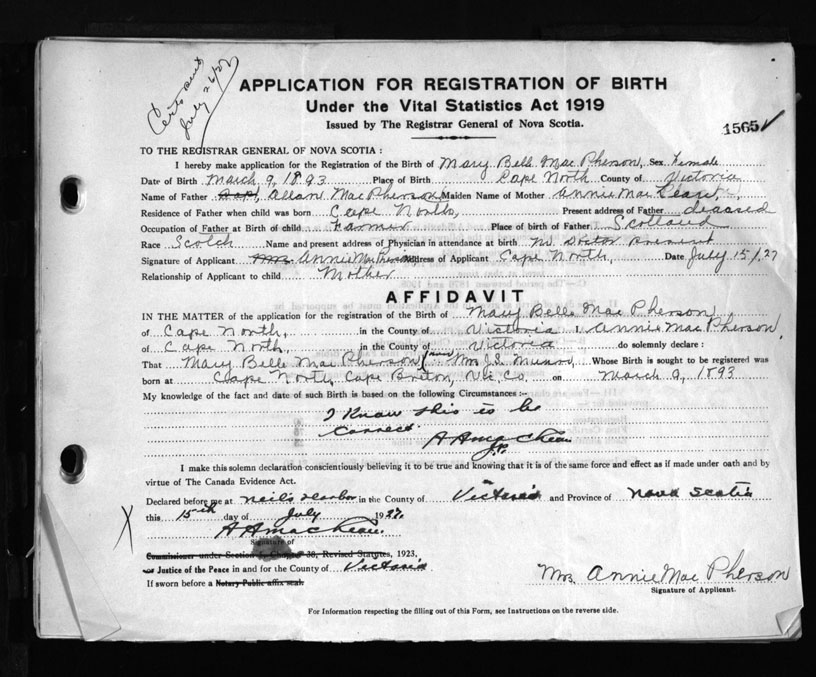 Certs sent
July 26/27
APPLICATION FOR REGISTRATION OF BIRTH
Under the Vital Statistics Act 1919
Issued by The Registrar General of Nova Scotia.
1565
TO THE REGISTRAR GENERAL OF NOVA SCOTIA :
I hereby make application for the Registration of the Birth of Mary Bell MacPherson, Sex Female
Date of Birth March 9, 1893 Place of Birth Cape North County of Victoria
Name of Father Allan MacPherson, Maiden Name of Mother Annie Mac
Residence of Father when child was born Cape North, Present address of Father deceased
Occupation of Father at Birth of child Farmer Place of birth of Father Scotland
Race Scotch Name and present address of Physician in attendance at birth No Doctor Present
Signature of Applicant Mrs. Annie MacPherson Address of Applicant Cape North, Date July 15/27
Relationship of Applicant to child Mother
AFFIDAVIT
IN THE MATTER of the application for the registration of the Birth of Mary Belle MacPherson
of Cape North, in the County of Victoria I, Annie MacPherson,
of Cape North, in the County of Victoria do solemnly declare :
That Mary Belle MacPherson (now) Mrs J.S. Munro, Whose Birth is sought to be registered was
born at Cape North, Cape Breton, Vic. Co. on March 9, 1893
My knowledge of the fact and date of such Birth is based on the following Circumstances :-
I Know this to be
Correct.
A A MacLean
J.P.
I make this solemn declaration conscientiously believing it to be true and knowing that it is of the same force and effect as if made under oath and by
virtue of The Canada Evidence Act.
Declared before me at Neil's Harbor in the County of Victoria and Province of Nova Scotia
this 15th day of July 1927.
A A MacLean
Signature of
Commissioner under Section Chapter 38, Revised Statutes, 1923,
or Justice of the Peace in and for the County of Victoria
If sworn before a Notary Public affix seal
Mrs. Annie MacPherson
Signature of Applicant.
For Information respecting the filling out of this Form, see Instructions on the reverse side.